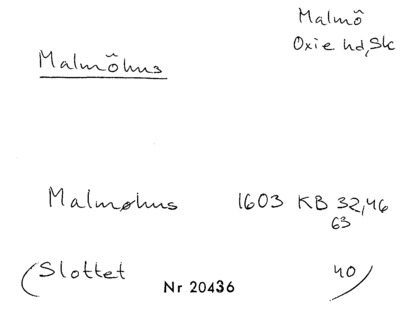 Malmö
Oxie hd, Sk
Malmöhus
Malmøhus 1603 KB 32,46
63
(Slottet 40)
Nr 20436